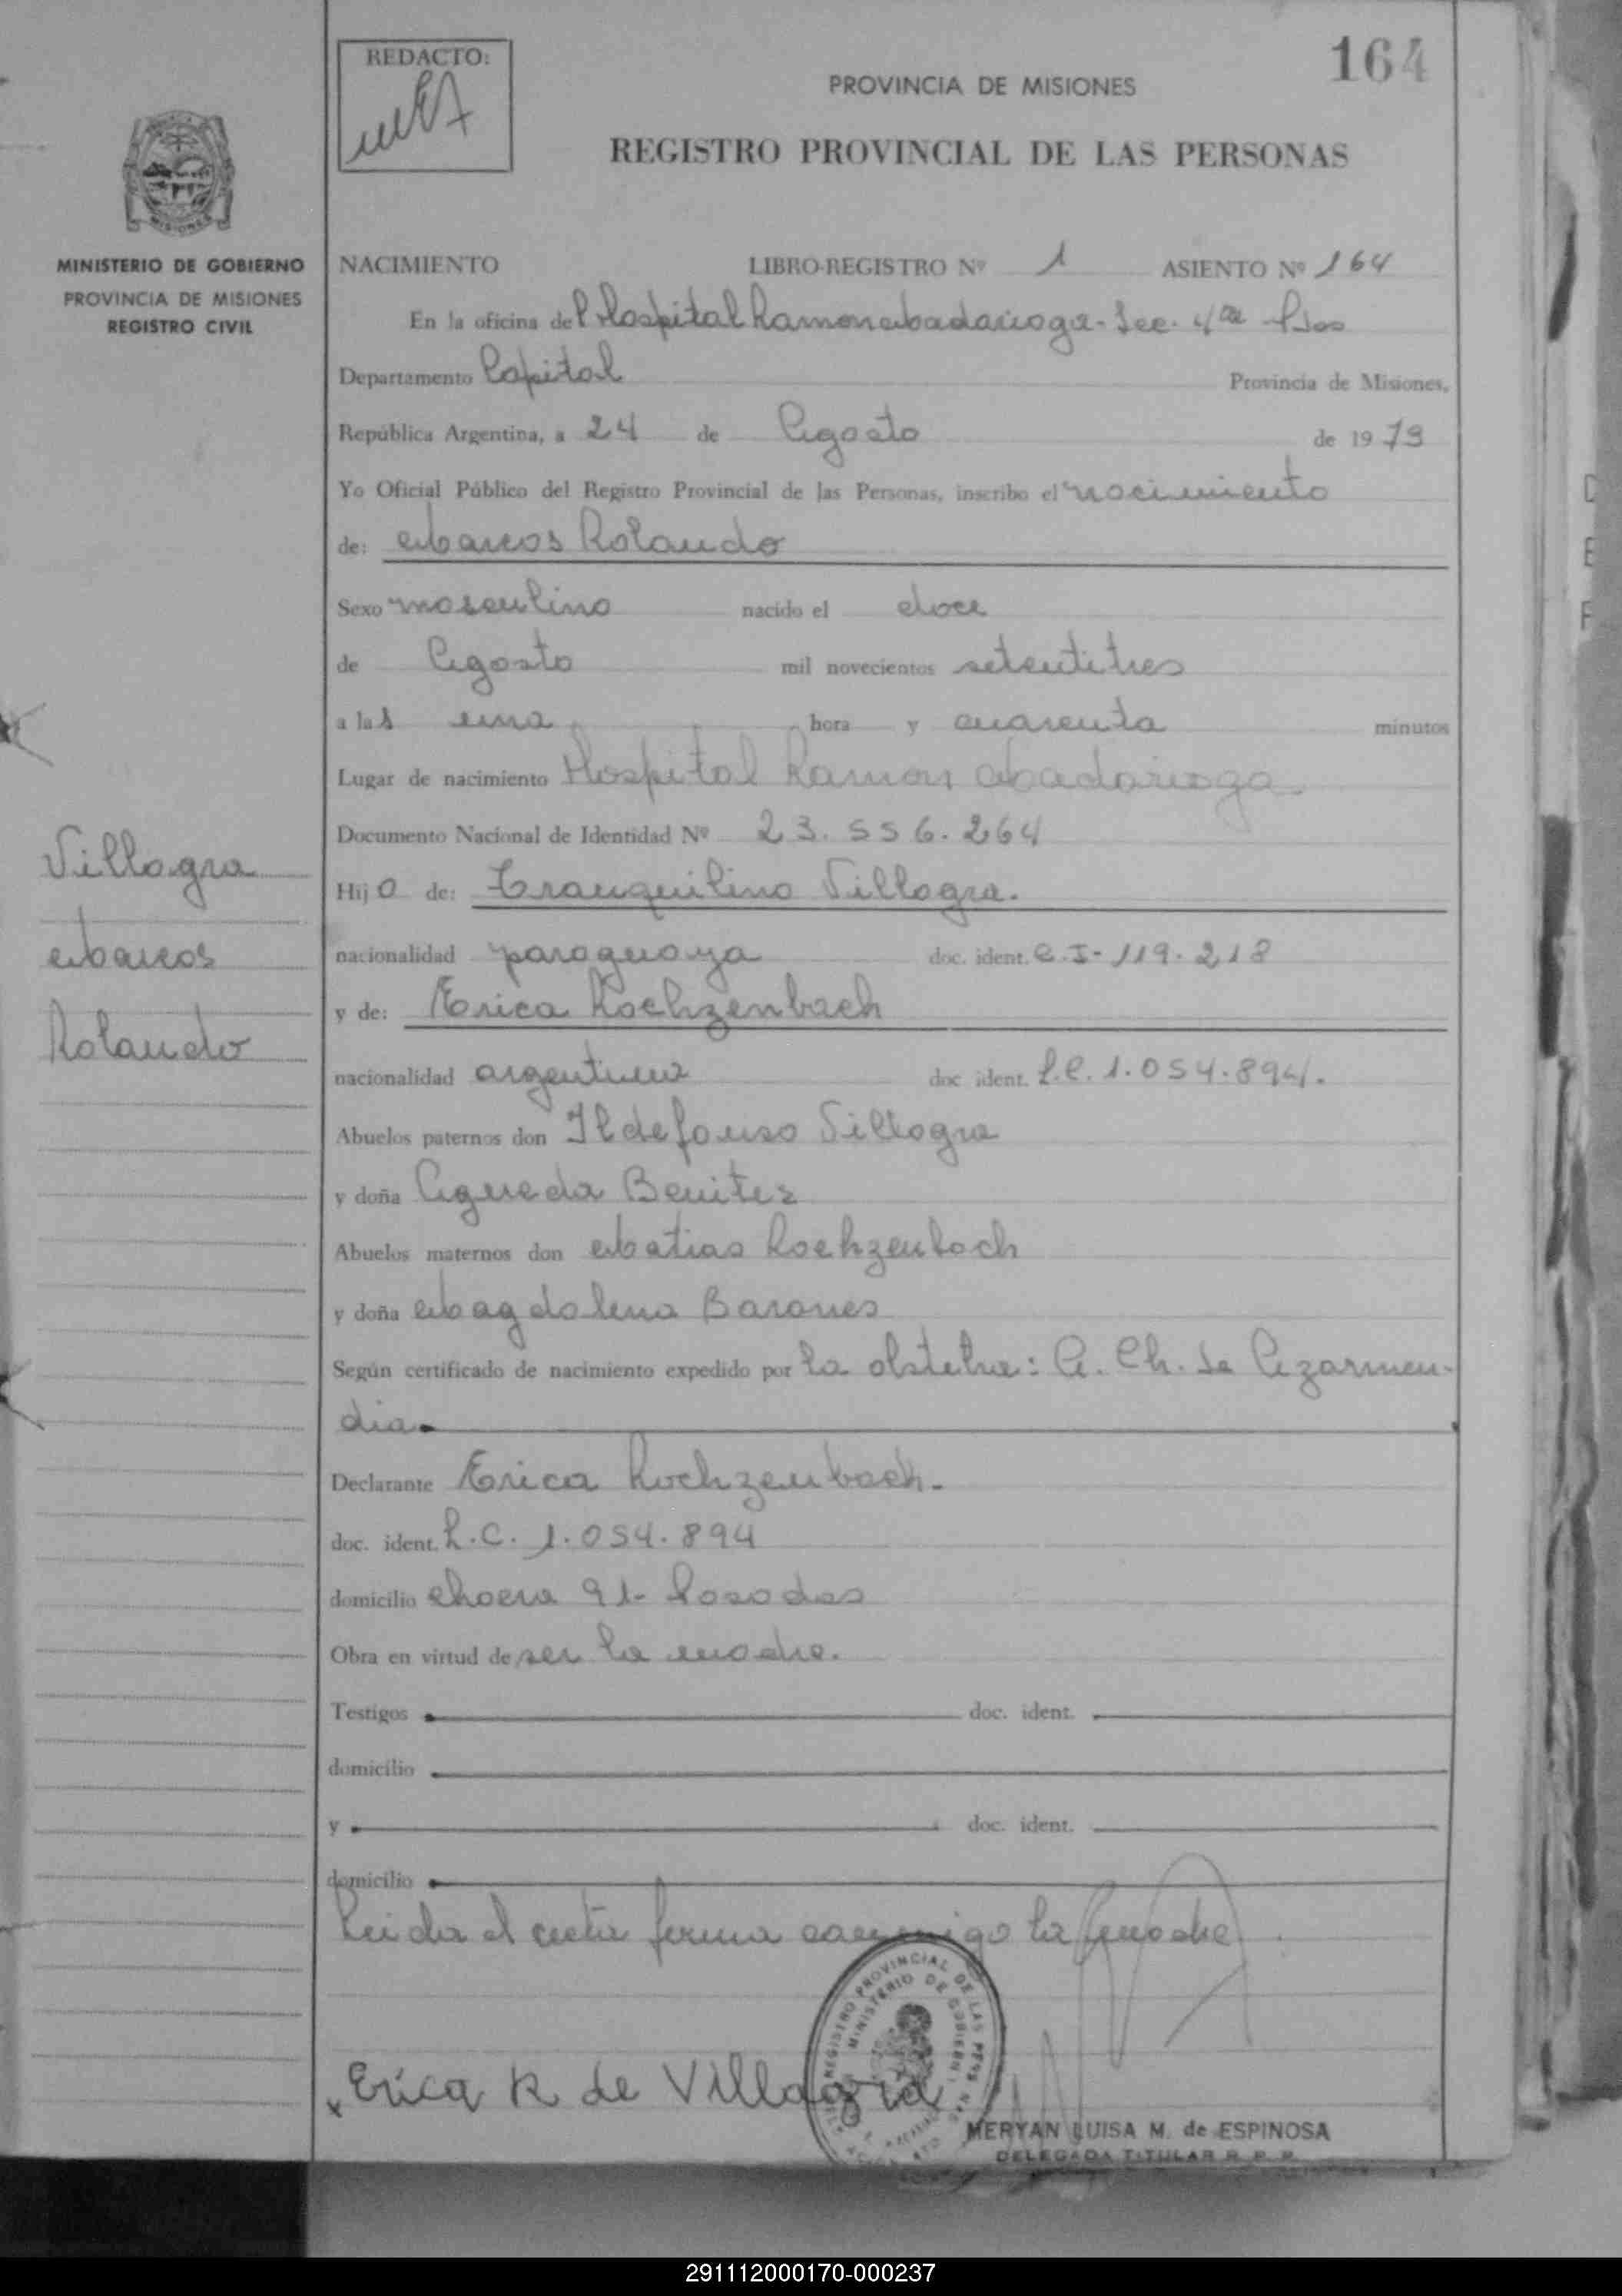 164
REDACTO:
PROVINCIA DE MISIONES
REGISTRO PROVINCIAL DE LAS PERSONAS
MISIONES
MINISTERIO DE GOBIERNO
PROVINCIA DE MISIONES
REGISTRO CIVIL
NACIMIENTO LIBRO-REGISTRO Nº 1 ASIENTO Nº 164
En la oficina del Hospital Ramon Madariaga - Sec. 4ta Pdas
Departamento Capital Provincia de Misiones,
República Argentina, a 24 de Agosto de 1973
Yo Oficial Público del Registro Provincial de las Personas, inscribo el nacimiento
de: Marcos Rolando
Sexo masculino nacido el doce
de Agosto mil novecientos setentitres
a la una hora y cuarenta minutos
Lugar de nacimiento Hospital Ramon Madariaga
Documento Nacional de Identidad Nº 23.556.264
Villagra
Marcos
Rolando
Hijo de: Tranquilino Villagra.
nacionalidad paraguaya doc. ident. C.I- 119.218
y de: Erica Rochzenbach
nacionalidad argentina doc ident. L.C. 1.054.894.
Abuelos paternos don Ildefonso Villagra
y doña Agueda Benitez
Abuelos maternos don Matias Rochzenbach
y doña Magdalena Barones
Según certificado de nacimiento expedido por la obstetra: A. Ch. de Azarmen-
dia
Declarante Erica Rochzenbach.
doc. ident. L.C. 1.054.894
domicilio 91- Posadas
Obra en virtud de ser la madre.
Testigos doc. ident.
domicilio
y doc. ident.
domicilio
Leida el acta firma conmigo la madre
REGISTRO PROVINCIAL DE LAS PERSONAS
MINISTERIO DE GOBIERNO
Erica R de Villagra
MERYAN LUISA M. de ESPINOSA
DELEGADA TITULAR R. P. P.
291112000170-000237